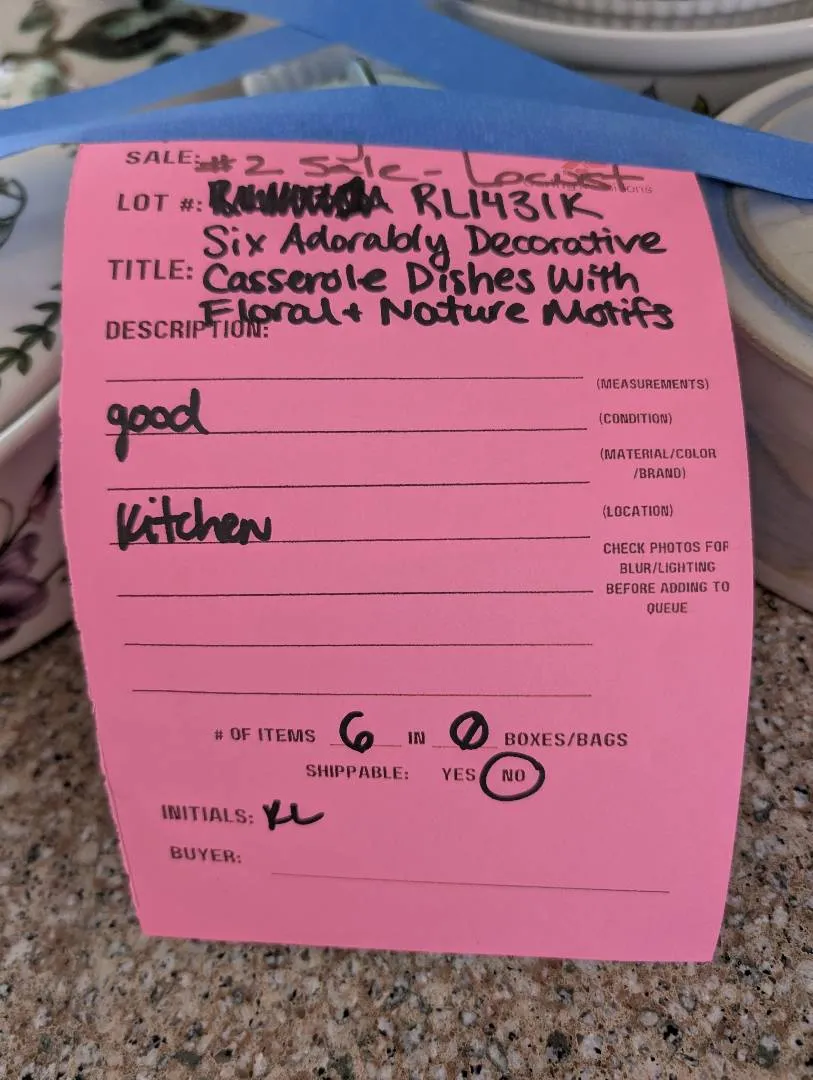 SALE: #2 Sale - Locust
LOT #: RL1431K
Six Adorably Decorative
TITLE: Casserole Dishes With
Floral + Nature Motifs
DESCRIPTION:
(MEASUREMENTS)
good (CONDITION)
(MATERIAL/COLOR
/BRAND)
Kitchen (LOCATION)
CHECK PHOTOS FOR
BLUR/LIGHTING
BEFORE ADDING TO
QUEUE
# OF ITEMS 6 IN 0 BOXES/BAGS
SHIPPABLE: YES NO
INITIALS: KL
BUYER: